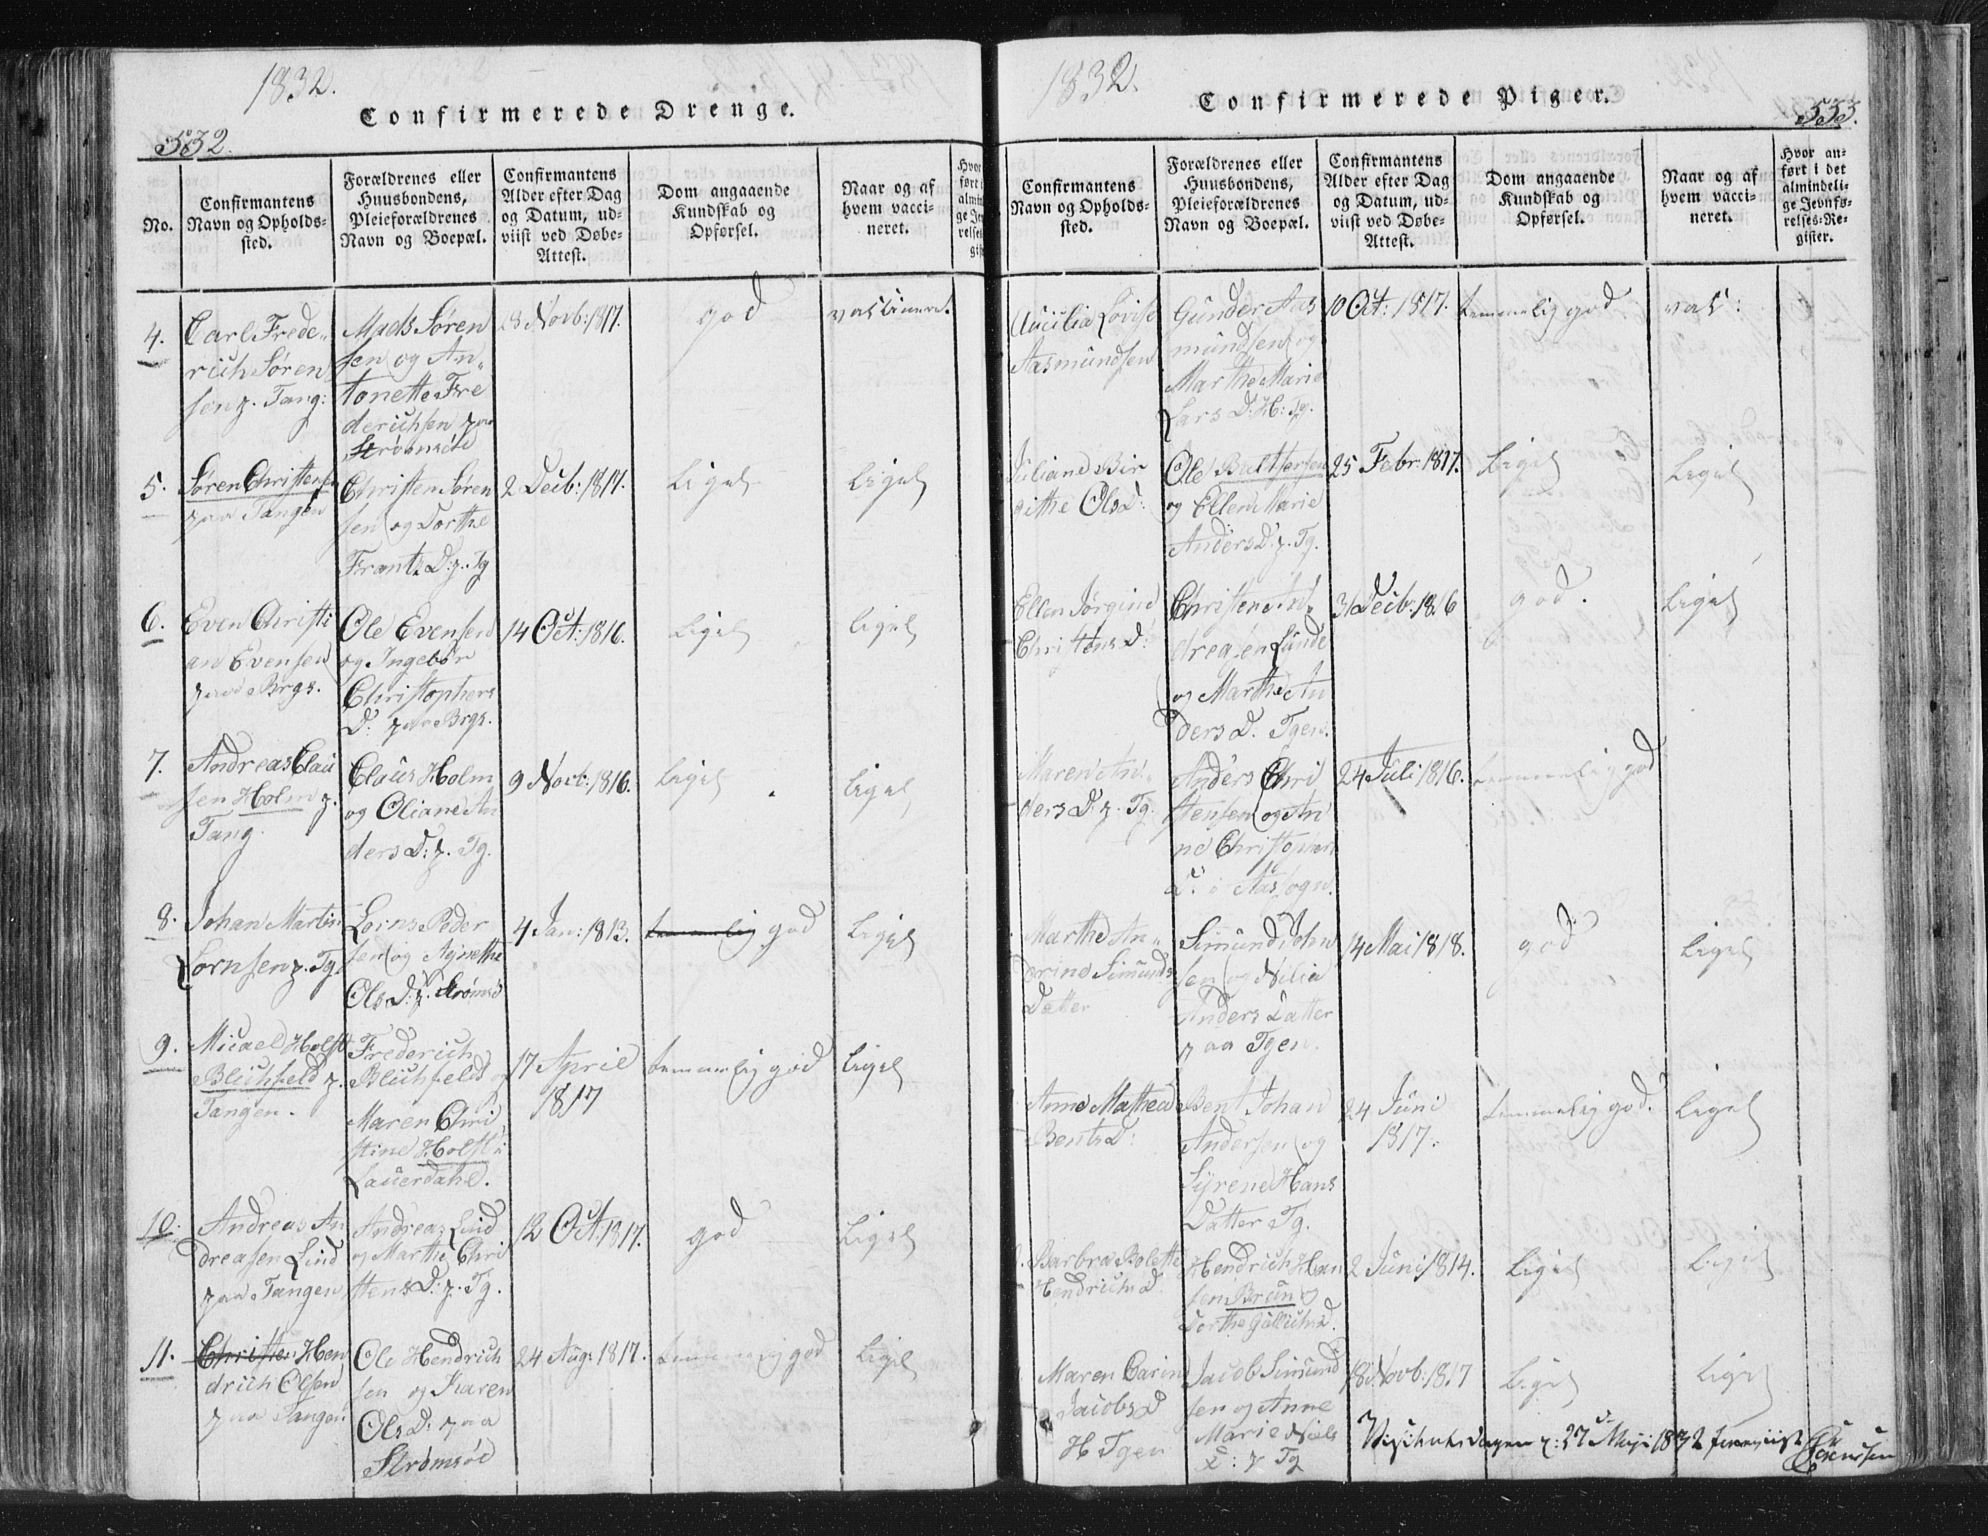 1832.
Confirmerede Drenge.
532.
No.
Confirmantens
Navn og Opholds-
sted.
Forældrenes eller
Huusbondens,
Pleieforældrenes
Navn og Boepæl.
Confirmantens
Alder efter Dag
og Datum, ud-
viist ved Døbe-
Attest.
Dom angaaende
Kundskab og
Opførsel.
Naar og af
hvem vacci-
neret.
4.
Carl Frede„
rich Søren
sen p. Tang:
Mads Søren
sen og An„
tonette Fre
derichsen paa
Strømsöe
28 Novb: 1817.
god
vaccineret.
5.
Søren Christensen
paa Tangen
Christen Søren
sen og Dorthe
Frants D: p. Tg
2 Decb: 1817.
Ligel
Ligel
6.
Even Christi
an Evensen
paa Brgs.
Ole Evensen
og Ingebor
Christophers
D: paa Brgs.
14 Oct: 1816.
Ligel
Ligel
7.
Andreas Clau
sen Holm p.
Tang.
Claus Holm
og Oliane An
ders D: p. Tg.
9 Novb: 1816.
Ligel
Ligel
8.
Johan Martin
Lornsen p. Tg.
Lorns Peder
sen og Agnethe
Ols D: p. Strømsö
4 Jan: 1813.
temmelig god
Ligel
9.
Micael Holst
Blichfeld p.
Tangen.
Frederich
Blichfeld og
Maren Chri
stine Holst i
Lauerdahl.
17 April
1817
temmelig god
Ligel
10.
Andreas An
dreasen Lind
paa Tangen
Andreas Lind
og Marthe Chri
stens D: p. Tg.
12 Oct: 1817.
god
Ligel
11.
Christen Hen
drich Olsen
paa Tangen
Ole Hendrich
sen og Karen
Ols D. paa
Strømsöe
24 Aug: 1817.
temmelig god
Ligel
1832.
Confirmerede Piger.
533.
Confirmantens
Navn og Opholds-
sted.
Forældrenes eller
Huusbondens,
Pleieforældrenes
Navn og Boepæl.
Confirmantens
Alder efter Dag
og Datum, ud-
viist ved Døbe-
Attest.
Dom angaaende
Kundskab og
Opførsel.
Naar og af
hvem vacci-
neret.
Hvor an-
ført i det
almindeli-
ge Jevnfø-
relses-Re-
gister.
Lovise
Aasmundsen
Gunder Aas
mundsen og
Marthe Marie
Lars D: H: Tg.
10 Oct: 1817.
temmelig god
vac:
Juliane Bir
githe Ols D:
Ole Baltsersen
og Ellen Marie
Anders D: p. Tg.
25 Febr: 1817.
Ligel
Ligel
Ellen Jørgine
Christens D:
Christen An
dreasen Lunde
og Marthe An
ders D. Tgen.
31 Decb: 1816
god.
Ligel
Maren An„
ders D: p. Tg.
Anders Chri
stensen og An
ne Christophers
D: i Aas sogn.
24 Juli 1816.
temmelig god
Marthe An„
drine Simunds
Datter
Simund John
sen og Nilia
Anders Datter
paa Tgen.
14 Mai 1818.
god
Ligel
Anne Mathea
Bents D:
Bent Johan
Andersen og
Syrene Hans
Datter Tg.
24 Juni
1817.
temmelig god.
Ligel
Barbra Bolette
Hendrichs D.
Hendrich Han
sen Brun og
Dorthe Gullichs D.
2 Juni 1814.
Ligel
Ligel
Maren Carine
Jacobs D
H Tgen
Jacob Simund
sen og Anne
Marie Niels
D: p Tg
18 Novb: 1817
Ligel
Ligel
27 Maji 1832